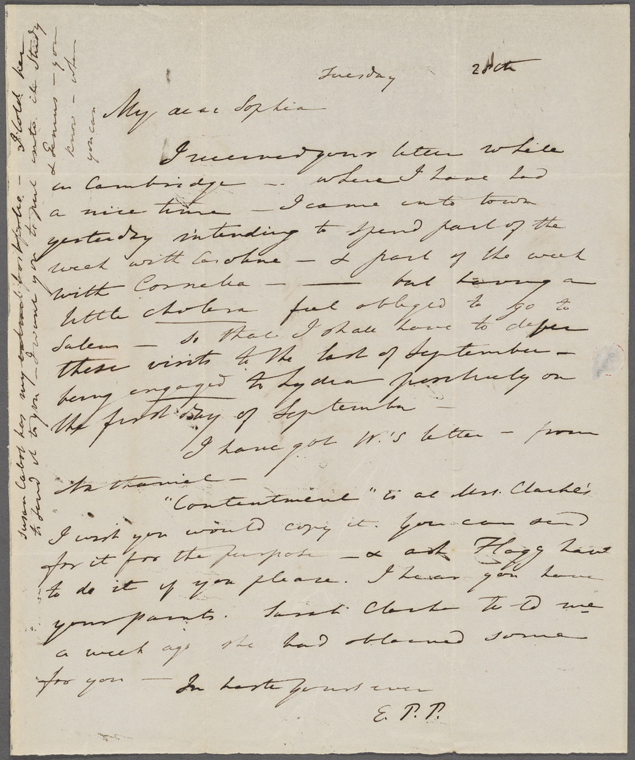 Tuesday 28th
My dear Sophia
I received your letter while
in Cambridge - where I have had
a nice time - I came into town
yesterday intending to spend part of the
week with Caroline - & part of the week
with Cornelia - but having a
little cholera feel obliged to go to
Salem - so that I shall have to defer
these visits to the last of September -
being engaged to Lydia positively on
the first day of September -
I have got W.'s letter - from
Nathaniel -
"Contentment" is at Mrs. Clarke's
I wish you would copy it. You can send
for it for the purpose - & ask Flagg how
to do it if you please. I hear you have
your paints. Sarah Clarke told me
a week ago she had obtained some
for you -
In haste yours ever
E. P. P.
Susan Cabot has my - I told her
to send it to you - I want you to put into it Study
& Genius - you
know - when
you can